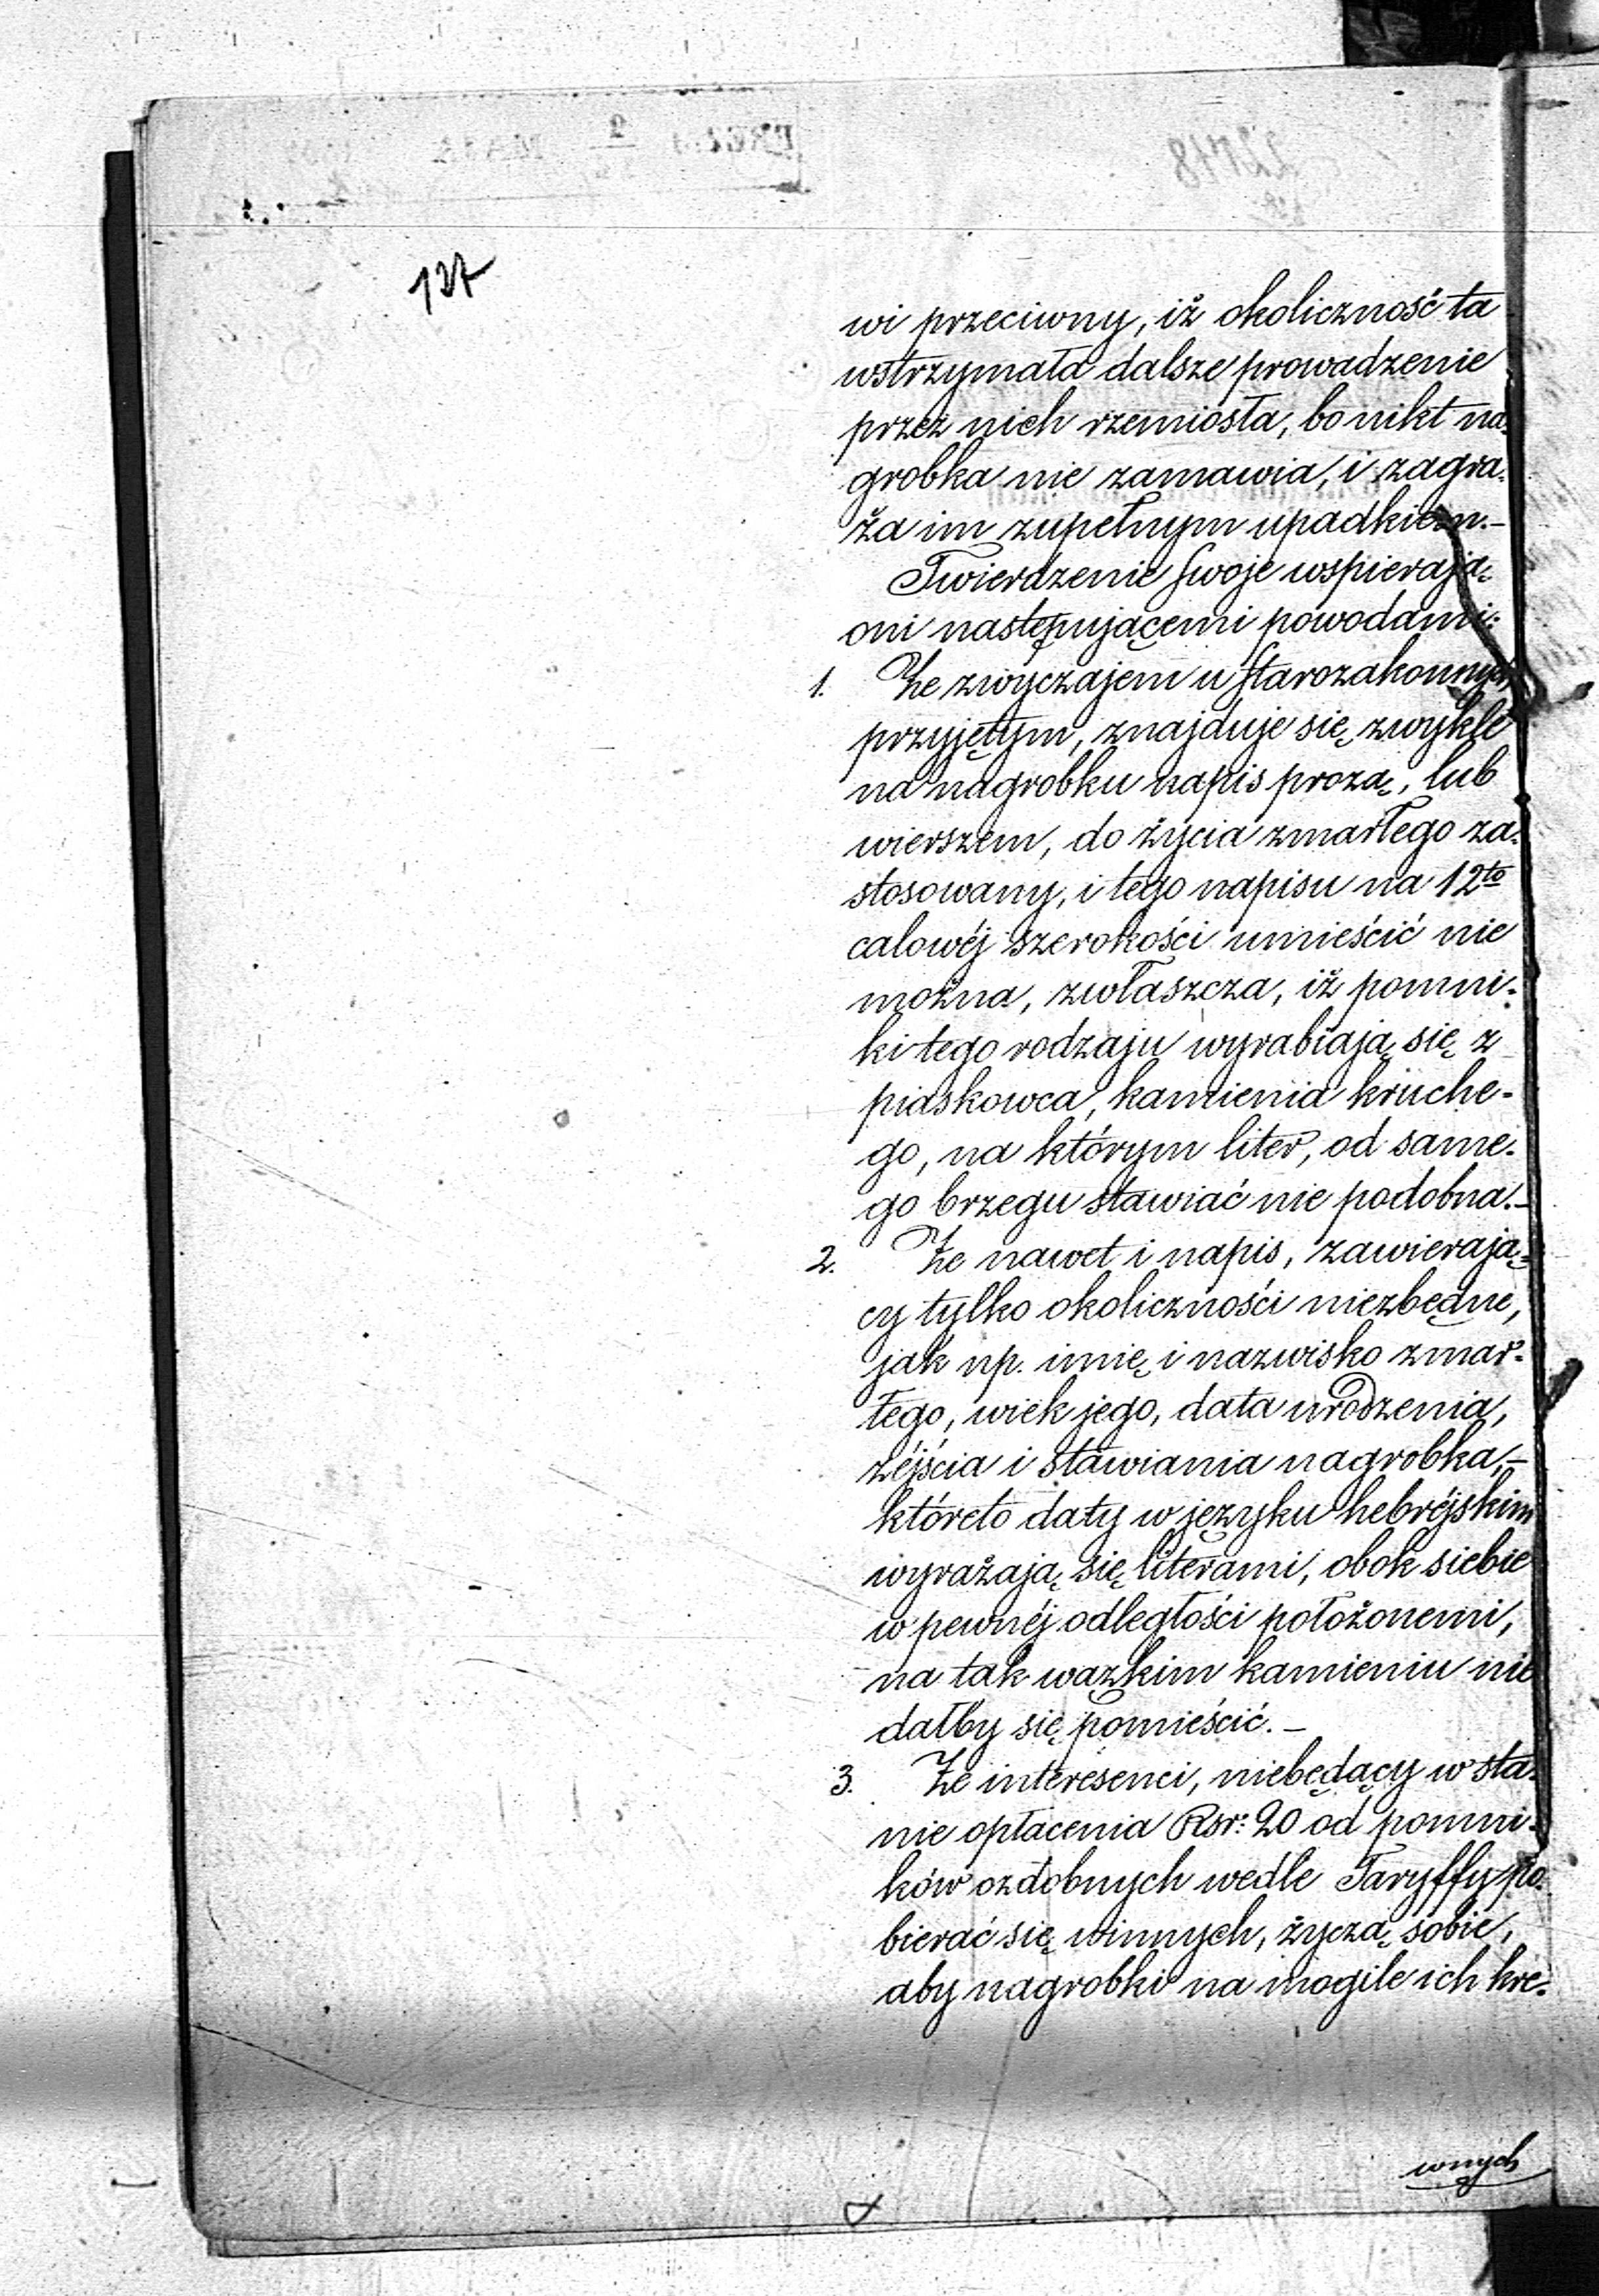 137
wi przeciwny, iż okoliczność ta
wstrzymała dalsze prowadzenie
przez nich rzemiosła, bo nikt na-
grobka nie zamawia, i zagra-
ża im zupełnym upadkiem.-
Twierdzenie swoje wspierają
oni następującemi powodami:
1. Że zwyczajem u starozakonnych
przyjętym, znajduje się zwykle
na nagrobku napis prozą, lub
wierszem, do życia zmarłego za-
stosowany, i tego napisu na 12to
calowéj szerokości umieścić nie
można, zwłaszcza, iż pomni-
ki tego rodzaju wyrabiają się z
piaskowca, kamienia kruche-
go, na którym liter, od same-
go brzegu stawiać nie podobna.-
2. Że nawet i napis, zawierają-
cy tylko okoliczności niezbędne,
jak np. imię i nazwisko zmar-
łego, wiek jego, data urodzenia,
zéjścia i stawiania nagrobka,-
któreto daty w języku hebréjskim
wyrażają się literami, obok siebie
w pewnéj odległości położonemi,
na tak wązkim kamieniu nie
dałby się pomieścić.-
3. Że interesenci, niebędący w sta-
nie opłacenia Rsr: 20 od pomni-
ków ozdobnych wedle Taryffy po-
bierać się winnych, życzą sobie,
aby nagrobki na mogile ich kre-
wnych